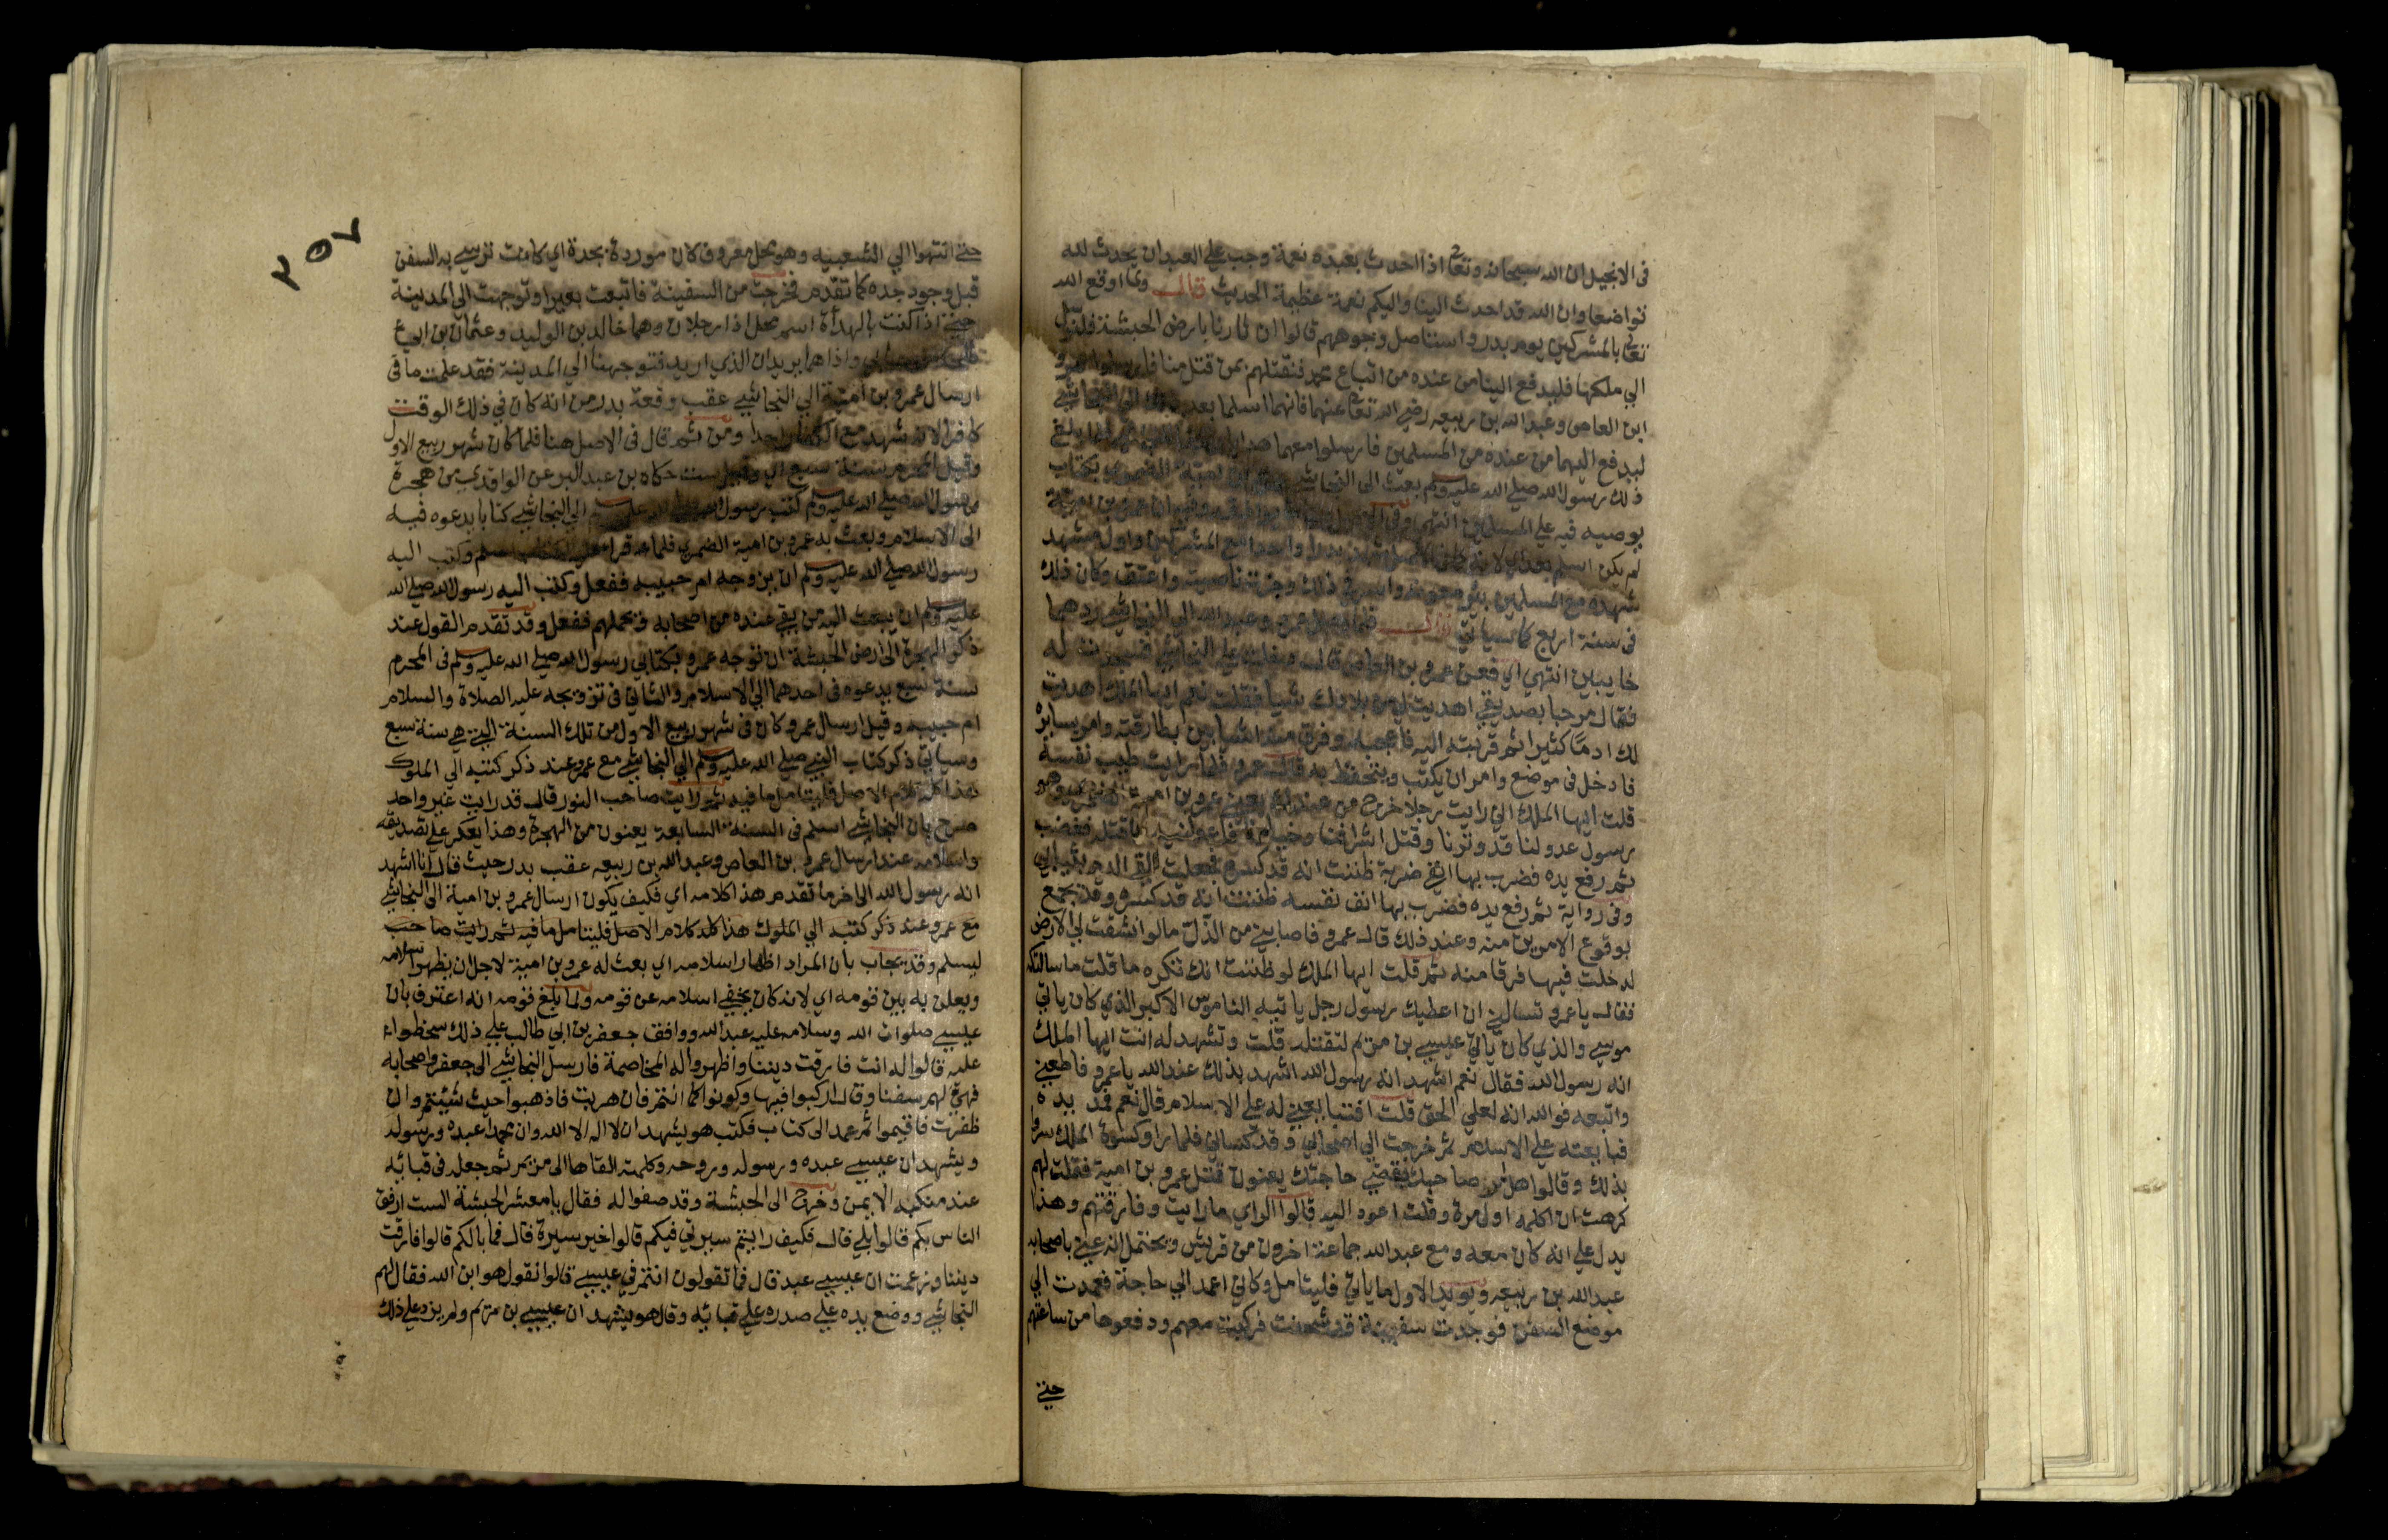 في الانجيل ان الله سبحانه وتعالى اذا احدث بعبده نعمة وجب علي العبد ان يحدث لله
تواضعا وان الله قد احدث الينا واليكم نعمة عظيمة الحديث قال ولما اوقع الله
تعالى بالمشركين يوم بدر واستاصل وجوههم قالوا ان ثارنا بارض الحبشة فلنرسل
الي ملكها فليدفع الينا من عنده من اتباع محمد فنقتلهم بمن قتل منا
ابن العاص وعبد الله بن ربيعه رضي الله تعالى عنهما فانهما اسلما بعد
ليدفع اليهما من عنده من المسلمين فارسلوا معهما
ذلك رسول الله صلي الله عليه وسلم بعث الي النجاشي الضمري بكتاب
يوصيه فيه علي المسلمين انتهي وفي
لم يكن اسلم بعد لانه المشركين واول مشهد
شهده مع المسلمين بئر معونه واسر في ذلك وجزت ناصيته واعتق وكان ذلك
في سنة اربع كما سياتي قال فلما وصل عمرو وعبد الله الي النجاشي ردهما
خايبين انتهي اي فعن عمرو بن العاص قال دخلت علي النجاشي فسجدت له
فقال مرحبا بصديقي اهديت لي من بلادك شيا فقلت نعم ايها الملك اهديت
لك ادما كثيرا ثم قربته اليه فاعجبه وفرق منه اشيا بين بطارقته وامر بسايره
فادخل في موضع وامر ان يكتب ويتحفظ به قال عمرو فلما رايت طيب نفسه
قلت ايها الملك اني رايت رجلا خرج من عندك يعني عمرو بن امية وهو
رسول عدو لنا قد وترنا وقتل اشرافنا وخيارنا فاعطنيه فاقتله فغضب
ثم رفع يده فضرب بها انفي ضربة ظننت انه قد كسره فجعلت القي الدم بثيابي
وفي رواية ثم رفع يده فضرب بها انف نفسه ظننت انه قد كسره وقد يجمع
بوقوع الامرين منه وعند ذلك قال عمرو فاصابني من الذل ما لو انشقت لي الارض
لدخلت فيها فرقا منه ثم قلت ايها الملك لو ظننت انك تكره ما قلت ما سالتكه
فقال يا عمرو تسالني ان اعطيك رسول رجل ياتيه الناموس الاكبر الذي كان ياتي
موسي والذي كان ياتي عيسي بن مريم لتقتله قلت وتشهد له انت ايها الملك
انه رسول الله فقال نعم اشهد انه رسول الله اشهد بذلك عند الله يا عمرو فاطعني
واتبعه فوالله انه لعلي الحق قلت افتبايعني له علي الاسلام قال نعم فمد يده
فبايعته علي الاسلام ثم خرجت الي اصحابي وقد كساني فلما راوكسوة الملك سروا
بذلك وقالوا هل من صاحبك قضي حاجتك يعنون قتل عمرو بن امية فقلت لهم
كرهت ان اكلمه اول مرة وقلت اعود اليه قالوا الراي ما رايت وفارقتهم وهذا
يدل علي انه كان معه ومع عبد الله جماعة اخرون من قريش ويحتمل انه عني باصحابه
عبد الله بن ربيعه ويويد الاول ما ياتي فليتامل وكاني اعمد الي حاجة فعمدت الي
موضع السفن فوجدت سفينة قد شحنت فركبت معهم ودفعوها من ساعتهم
حتي
٣٥٧
حتي انتهوا الي الشعيبيه وهو محل معروف كان موردة بجدة اي كانت ترسي به السفن
قبل وجود جده كما تقدم فخرجت من السفينة فاتبعت بعيرا وتوجهت الي المدينة
حتي اذا كنت بالهدأة اسم محل اذا رجلان وهما خالد بن الوليد وعثمان بن ابي
واذا هما يريدان الذي اريد فتوجهنا الي المدينة فقد علمت ما في
ارسال عمرو بن امية الي النجاشي عقب وقعة بدر من انه كان في ذلك الوقت
كافرا لانه شهد مع الكفار احدا ومن ثم قال في الاصل هنا فلما كان شهر ربيع الاول
وقيل المحرم سنة سبع اي وقيل ست حكاه بن عبد البر عن الواقدي من هجرة
رسول الله صلي الله عليه وسلم كتب رسول الله الي النجاشي كتابا يدعوه فيه
الي الاسلام وبعث به عمرو بن امية الضمري فلما قراء عليه الكتاب اسلم وكتب اليه
رسول الله صلي الله عليه وسلم ان يزوجه ام حبيبه ففعل وكتب اليه رسول الله صلي الله
عليه وسلم ان يبعث اليه من بقي عنده من اصحابه ويحملهم ففعل وقد تقدم القول عند
ذكر الهجرة الي ارض الحبشة ان توجه عمرو بكتابي رسول الله صلي الله عليه وسلم في المحرم
سنة سبع يدعوه في احدهما الي الاسلام والثاني في تزويجه عليه الصلاة والسلام
ام حبيبه وقيل ارسال عمرو كان في شهر ربيع الاول من تلك السنة التي هي سنة سبع
وسياتي ذكر كتاب النبي صلي الله عليه وسلم الي النجاشي مع عمرو عند ذكر كتبه الي الملوك
هذا كله كلام الاصل فليتامل ما فيه ثم رايت صاحب النور قال قد رايت غير واحد
صرح بان النجاشي اسلم في السنة السابعة يعنون من الهجرة وهذا يعكر علي تصديقه
واسلامه عند ارسال عمرو بن العاص وعبد الله بن ربيعه عقب بدر حيث قال انا اشهد
انه رسول الله الي اخر ما تقدم هذا كلامه اي فكيف يكون ارسال عمرو بن امية الي النجاشي
مع عمرو عند ذكر كتبه الي الملوك هذا كله كلام الاصل فليتامل ما فيه ثم رايت صاحب
ليسلم وقد يجاب بان المراد اظهار اسلامه اي بعث له عمرو بن امية لاجل ان يظهر اسلامه
ويعلن به بين قومه اي لانه كان يخفي اسلامه عن قومه ولما بلغ قومه انه اعترف بان
عيسي صلوات الله وسلامه عليه عبد الله ووافق جعفر بن ابي طالب علي ذلك سخطوا
عليه قالوا له انت فارقت ديننا واظهروا له المخاصمة فارسل النجاشي الي جعفر واصحابه
فهيئ لهم سفنا وقال اركبوا فيها وكونوا كما انتم فان هربت فاذهبوا حيث شيتم وان
ظفرت فاقيموا ثم عمد الي كتاب فكتب هو يشهد ان لا اله الا الله وان محمدا عبده ورسوله
ويشهد ان عيسي عبده ورسوله وروحه وكلمته القاها الي مريم ثم جعله في قبائه
عند منكبه الايمن وخرج الي الحبشة وقد صفوا له فقال يا معشر الحبشة الست ارفق
الناس بكم قالوا بلي قال فكيف رايتم سيرتي فيكم قالوا خير سيرة قال فما بالكم قالوا فارقت
ديننا وزعمت ان عيسي عبد قال فما تقولون انتم في عيسي قالوا نقول هو ابن الله فقال لهم
النجاشي ووضع يده علي صدره علي قبائه وقال هو يشهد ان عيسي بن مريم ولم يزد علي ذلك